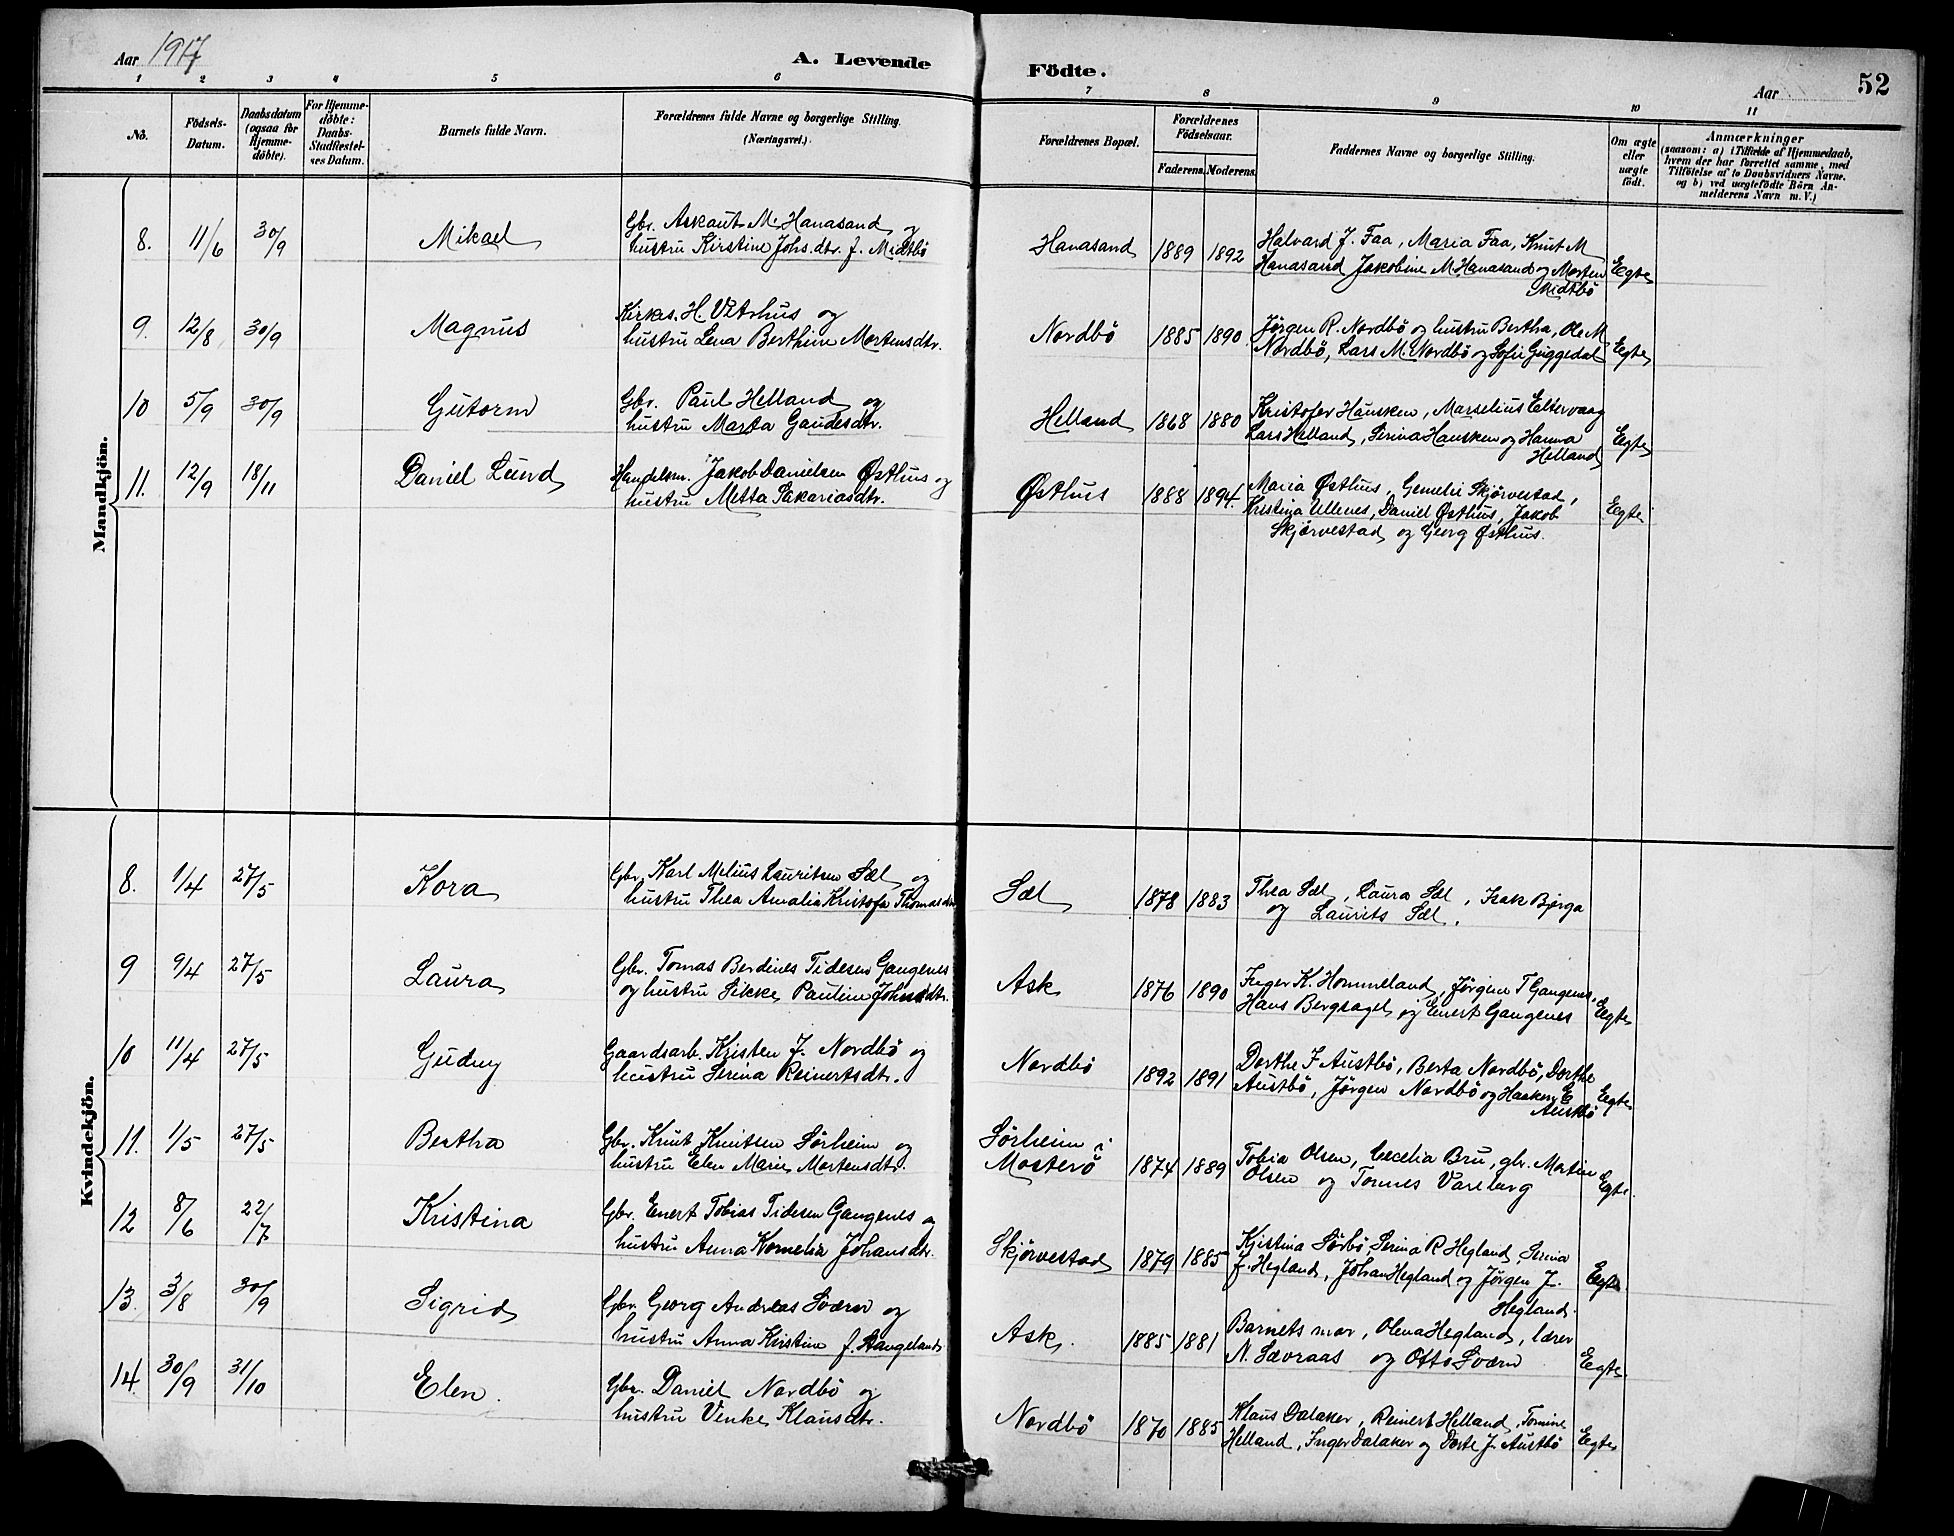 Aar 1917
A. Levende Födte.
Aar
52
1 2 3 4 5 6 7 8 9 10 11
No.
Födsels-Datum.
Daabsdatum (ogsaa for Hjemme-döbte).
For Hjemme-döbte: Daabs-Stadfæstel-ses Datum.
Barnets fulde Navn.
Forældrenes fulde Navne og borgerlige Stilling. (Næringsvei.)
Forældrenes Bopæl.
Forældrenes Födselsaar.
Faderens. Moderens.
Faddernes Navne og borgerlige Stilling.
Om ægte eller uægte födt.
Anmærkninger
(saasom: a) i Tilfælde af Hjemmedaab,
hvem der har forrettet samme, med
Tilföielse af to Daabsvidners Navne.
og b) ved uægtefödte Börn An-
melderens Navn m. V.)
Mandkjön.
8. 11/6 30/9 Mikael Gbr. Askaut M. Hanasand og
hustru Kirstine Johs.dtr. f. Midtbö
Hanasand 1889 1892 Halvard J. Faa, Maria Faa, Knut M
Hanasand Jakobine M Hanasand og Morten
Midtbö Egte
9. 12/8 30/9 Magnus Kirkes. H. Vestrhus og
hustru Lena Berthine Mortensdtr.
Nordbö 1885 1890. Jörgen R. Nordbö og hustru Bertha, Ole M
Nordbö, Lars M. Nordbö og Sofie Giggedal Egte
10 5/9 30/9 Gutorm Gbr. Paul Helland og
hustru Marta Gaudesdtr.
Helland 1868 1880 Kristofer Hausken, Marselius Eltervaag
Lars Helland, Serina Hausken og Hanna
Helland Egte
11. 12/9 18/11 Daniel Lund Handelsm. Jakob Danielsen Østhus og
hustru Metta Sakariasdtr.
Østhus 1888 1894. Maria Østhus, Skjörvestad,
Kristina Ullenes, Daniel Østhus, Jakob
Skjörvestad og Georg Østhus. Egte
Kvindekjön.
8. 1/4 27/5 Kora Gbr. Karl Melius Lauritsen Sæl og
hustru Thea Amalia Kristofa Thomasdtr
Sæl 1878 1883 Thea Sæl, Laura Sæl, Isak Bjerga
og Laurits Sæl.
9 9/4 27/5 Laura Gbr. Tomas Berdines Tidesen Gangenes
og hustru Sikke Pauline Johnsdtr.
Ask 1876 1890 Inger K. Hommeland, Jörgen T Gangenes,
Hans Bergsagel og Enert Gangenes Egte
10 11/4 27/5 Gudny Gaardsarb. Kristen J. Nordbö og
hustru Serina Reinertsdtr.
Nordbö 1892 1891 Dorthe J Austbö, Berta Nordbö, Dorthe
Austbö, Jörgen Nordbö og Haaken E
Austbö Egte
11. 1/5 27/5 Bertha Gbr. Knut Knutsen Sörheim og
hustru Elen Marie Mortensdtr.
Sörheim i
Mosterö 1874 1889 Tobia Olsen, Cecelia Bru, gbr. Martin
Olsen og Tonnes Vareberg Egte.
12 8/6 22/7 Kristina Gbr. Enert Tobias Tidesen Gangenes og
hustru Anna Kornelia Johansdtr.
Skjörvestad 1879 1885 Kjistina Sörbö, Serina R Hegland, Serina
J. Hegland, Johan Hegland og Jörgen J.
Hegland. Egte
13. 3/8 30/9 Sigrid Gbr. Georg Andreas Sværn og
hustru Anna Kristine f. Stangeland
Ask. 1885 1881 Barnets mor, Olena Hegland, lærer
N. Sævraas og Otto Sværn Egte
14. 30/9 31/10 Elen. Gbr. Daniel Nordbö og
hustru Venke Klausdtr.
Nordbö 1870 1885 Klaus Dalaker, Reinert Helland, Tomine
Helland, Inger Dalaker og Dorte J. Austbö Egte